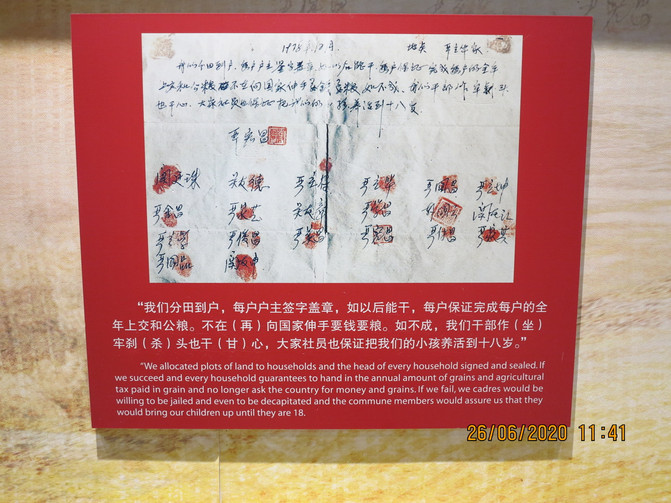 1978.12月. 地点 严立华家
我们分田到户,每户户主签字盖章,如以后能干,每户保证完成每户的全年
上交和公粮.不在向国家伸手要钱要粮,如不成,我们干部作牢刹头
也干心,大家社员也保证把我们的小孩养活到十八岁.
严宏昌
关廷珠 关友德 严立符 严立华 严国昌 严立坤
严金昌 严家芝 关友章 严学昌 韩国云 关友江
严立学 严俊昌 严美昌 严宏昌 严付昌 严家其
严国品 关友申
“我们分田到户，每户户主签字盖章，如以后能干，每户保证完成每户的全
年上交和公粮。不在（再）向国家伸手要钱要粮。如不成，我们干部作（坐）
牢刹（杀）头也干（甘）心，大家社员也保证把我们的小孩养活到十八岁。”
"We allocated plots of land to households and the head of every household signed and sealed. If
we succeed and every household guarantees to hand in the annual amount of grains and agricultural
tax paid in grain and no longer ask the country for money and grains. If we fail, we cadres would be
willing to be jailed and even to be decapitated and the commune members would assure us that they
would bring our children up until they are 18.
26/06/2020 11:41